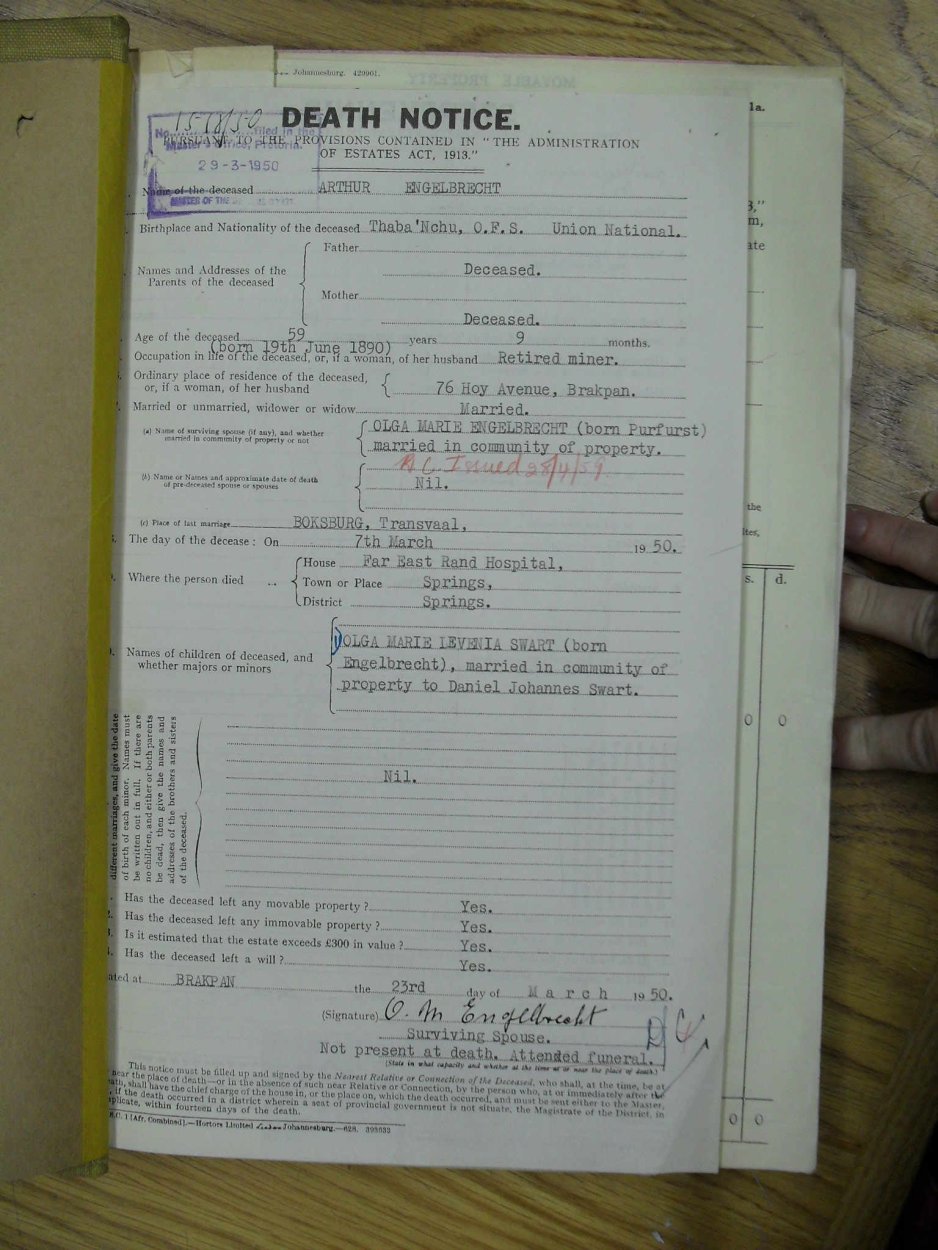 Johannesburg. 429901.
MOVABLE PROPERTY
1578/50
DEATH NOTICE.
No. filed in the
Master's Office, Pretoria.
29-3-1950
MASTER OF THE
PURSUANT TO THE PROVISIONS CONTAINED IN "THE ADMINISTRATION
OF ESTATES ACT, 1913."
Name of the deceased ARTHUR ENGELBRECHT
Birthplace and Nationality of the deceased Thaba'Nchu, O.F.S. Union National.
Names and Addresses of the
Parents of the deceased
Father
Deceased.
Mother
Deceased.
Age of the deceased 59 years 9 months.
(born 19th June 1890)
Occupation in life of the deceased, or, if a woman, of her husband Retired miner.
Ordinary place of residence of the deceased,
or, if a woman, of her husband 76 Hoy Avenue, Brakpan.
Married or unmarried, widower or widow Married.
(a) Name of surviving spouse (if any), and whether
married in community of property or not
OLGA MARIE ENGELBRECHT (born Purfurst)
married in community of property.
A C Issued 28/4/59
(b) Name or Names and approximate date of death
of pre-deceased spouse or spouses
Nil.
(c) Place of last marriage BOKSBURG, Transvaal,
The day of the decease: On 7th March 1950.
Where the person died ..
House Far East Rand Hospital,
Town or Place Springs,
District Springs.
Names of children of deceased, and
whether majors or minors
OLGA MARIE LEVENIA SWART (born
Engelbrecht), married in community of
property to Daniel Johannes Swart.
different marriages, and give the date
of birth of each minor. Names must
be written out in full. If there are
no children, and either or both parents
be dead, then give the names and
addresses of the brothers and sisters
of the deceased.
Nil.
Has the deceased left any movable property? Yes.
Has the deceased left any immovable property? Yes.
Is it estimated that the estate exceeds £300 in value? Yes.
Has the deceased left a will? Yes.
ated at BRAKPAN the 23rd day of March 1950.
(Signature) O. M Engelbrecht
Surviving Spouse.
Not present at death. Attended funeral.
(State in what capacity and whether at the time at or near the place of death.)
This notice must be filled up and signed by the Nearest Relative or Connection of the Deceased, who shall, at the time, be at
near the place of death—or in the absence of such near Relative or Connection, by the person who, at or immediately after the
ath, shall have the chief charge of the house in, or the place on, which the death occurred, and must be sent either to the Master,
if the death occurred in a district wherein a seat of provincial government is not situate, the Magistrate of the District, in
plicate, within fourteen days of the death.
1 [Afr. Combined].—Hortors Limited Johannesburg.—628. 393533
la.
3,"
m,
ate
the
ites,
s. d.
0 0
0 0